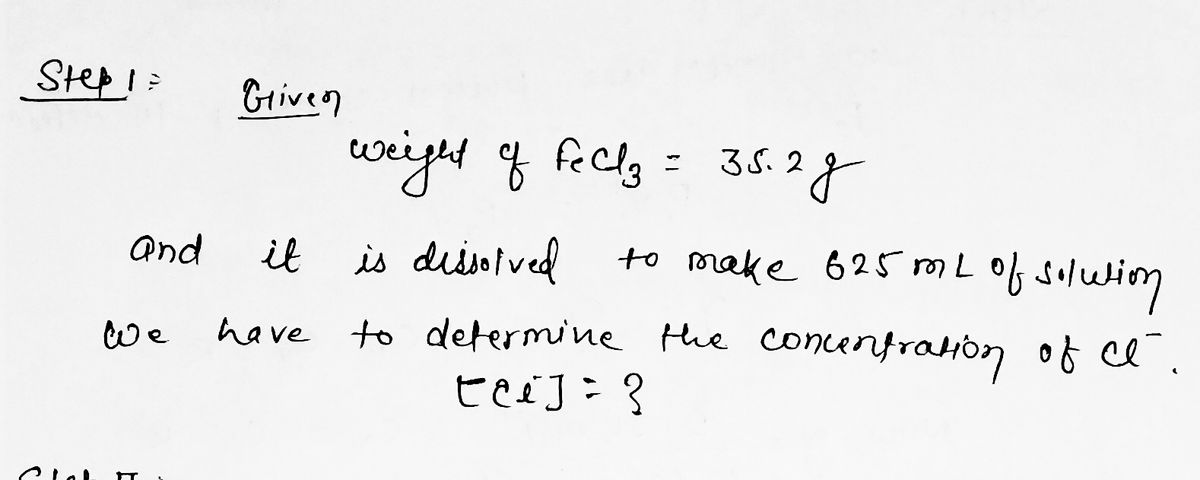 Step 1:
Given
weight of FeCl3 = 35.2 g
and it is dissolved to make 625 mL of solution
we have to determine the concentration of Cl⁻.
[Cl⁻] = ?